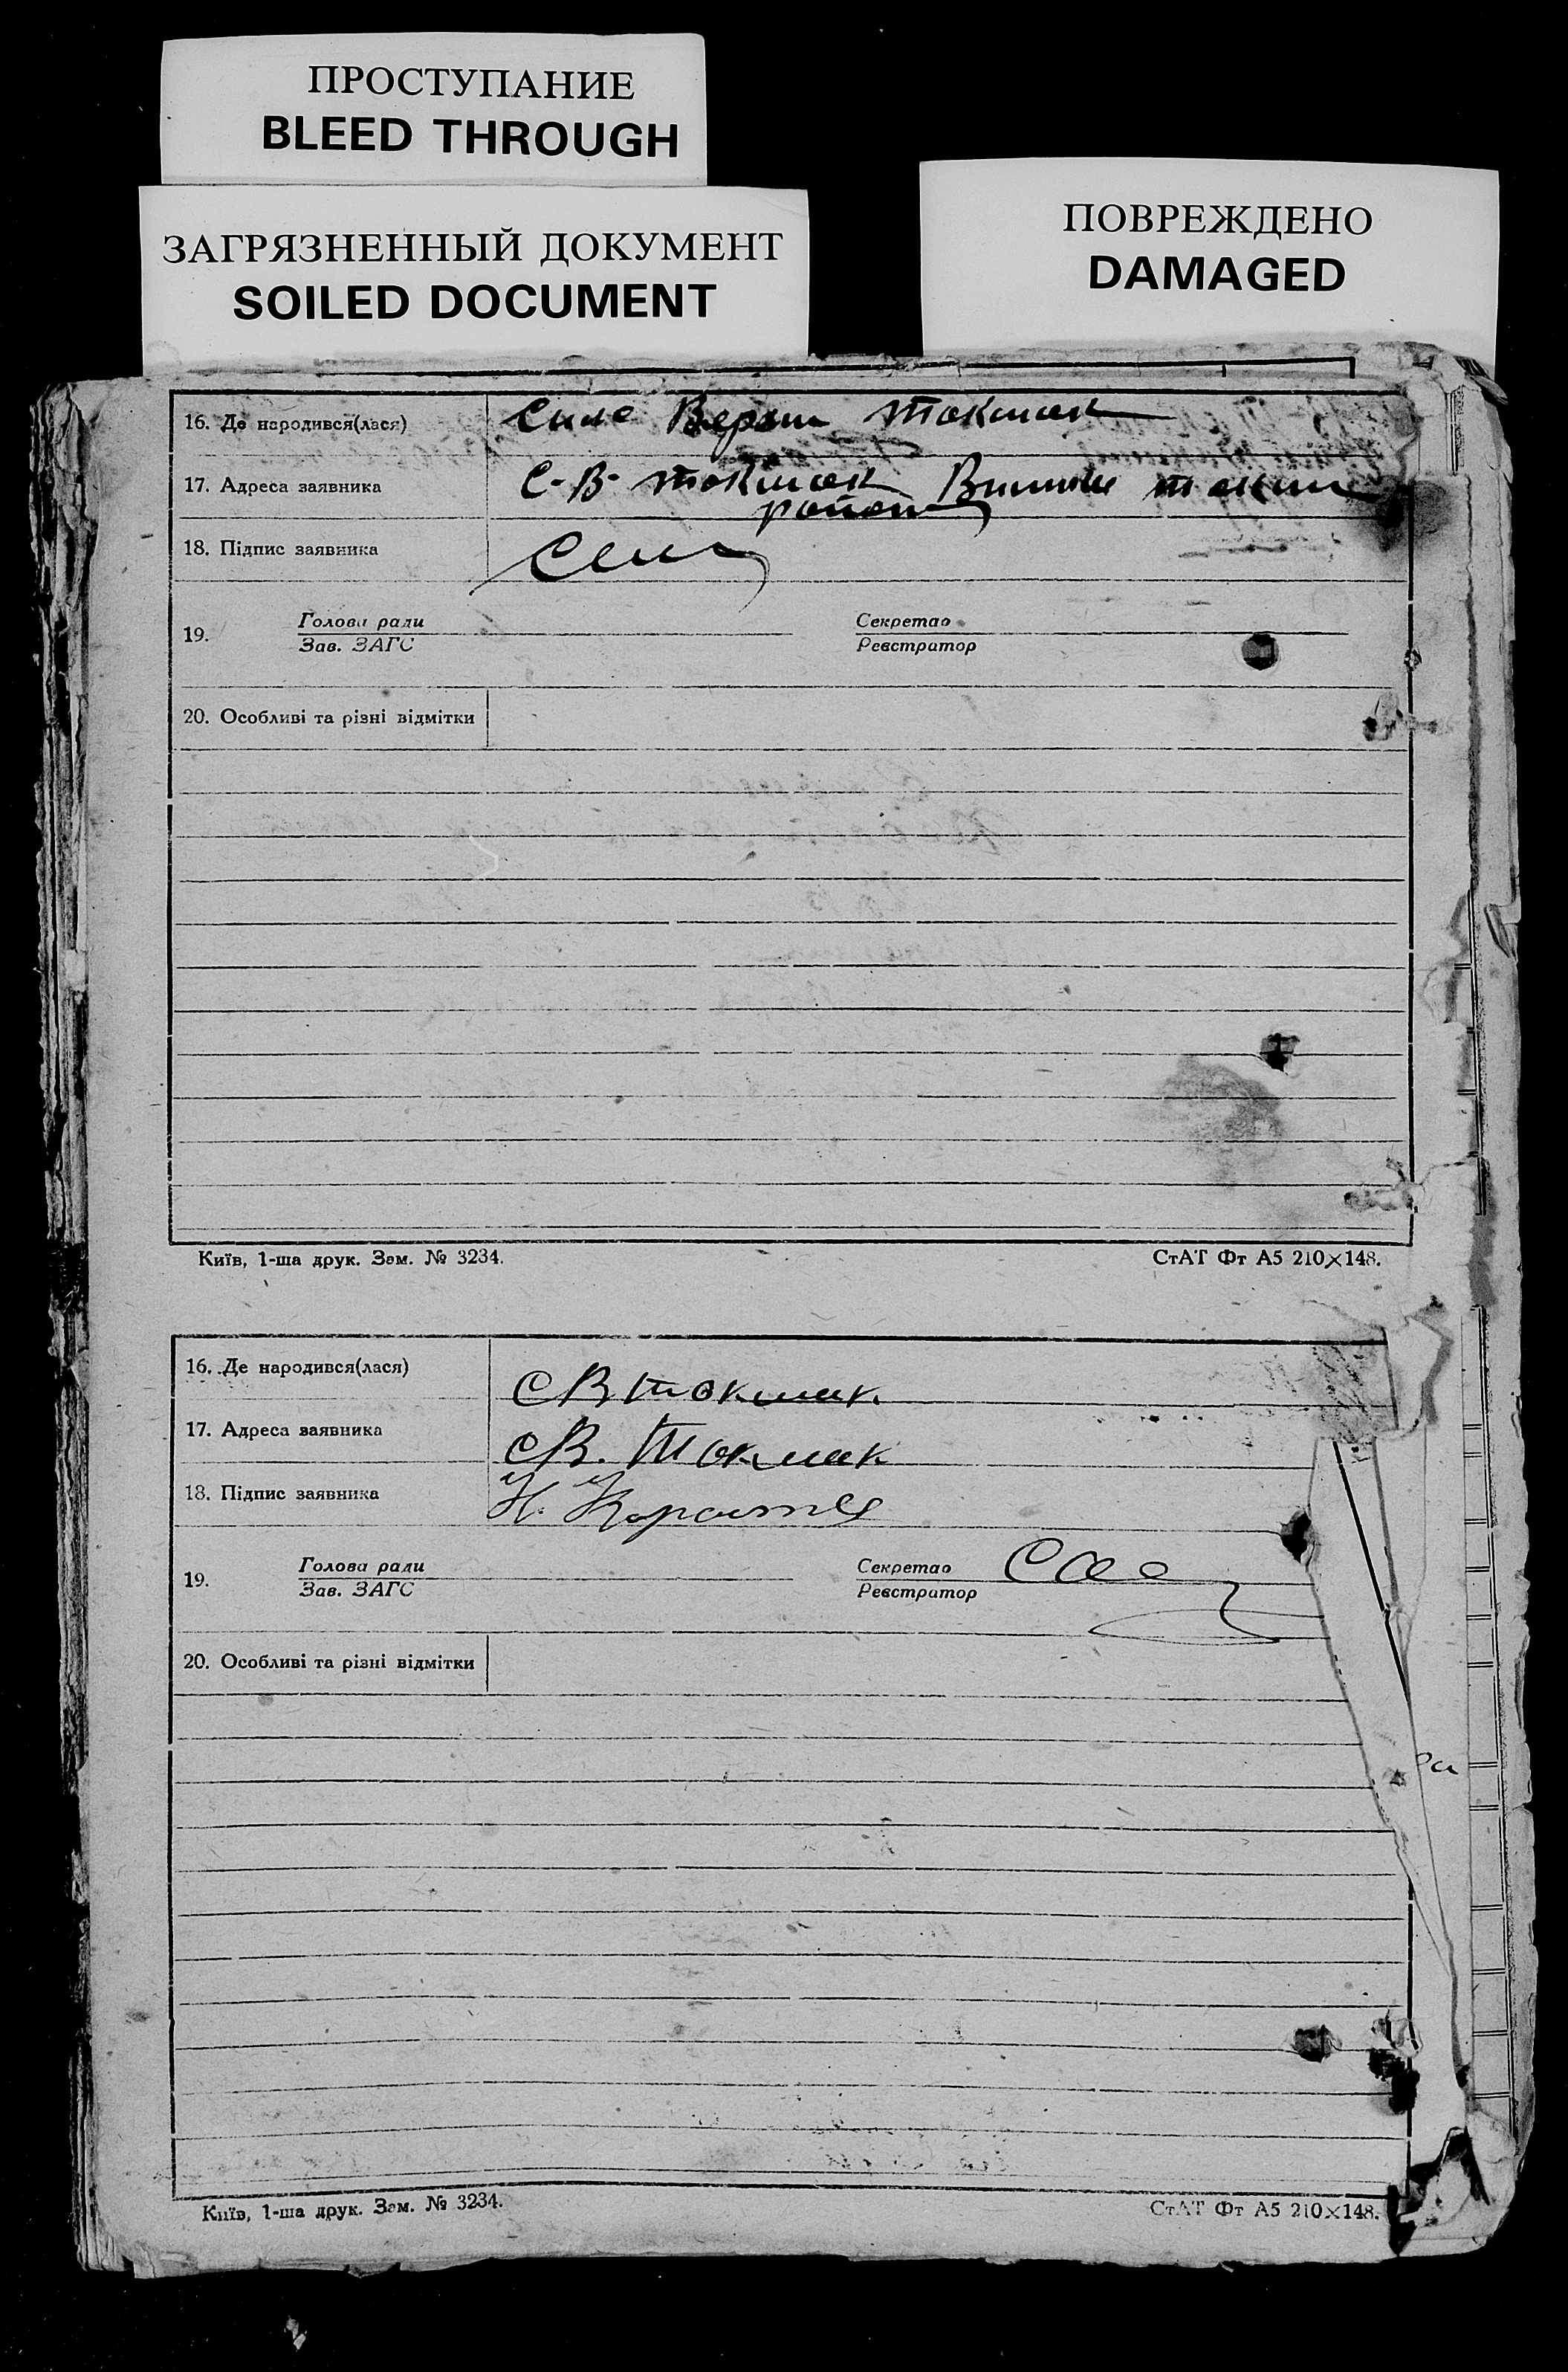 ПРОСТУПАНИЕ
BLEED THROUGH
ЗАГРЯЗНЕННЫЙ ДОКУМЕНТ
SOILED DOCUMENT
ПОВРЕЖДЕНО
DAMAGED
16. Де народився(лася) Токмак
17. Адреса заявника С-В- Токмак
район
18. Підпис заявника
19. Голова ради Секретар
Зав. ЗАГС Реєстратор
20. Особливі та різні відмітки
Київ, 1-ша друк. Зам. № 3234. СтАТ Фт А5 210×148.
16. Де народився(лася) С В Токмак
17. Адреса заявника С В. Токмак
18. Підпис заявника
19. Голова ради Секретар
Зав. ЗАГС Реєстратор
20. Особливі та різні відмітки
Київ, 1-ша друк. Зам. № 3234. СтАТ Фт А5 210×148.